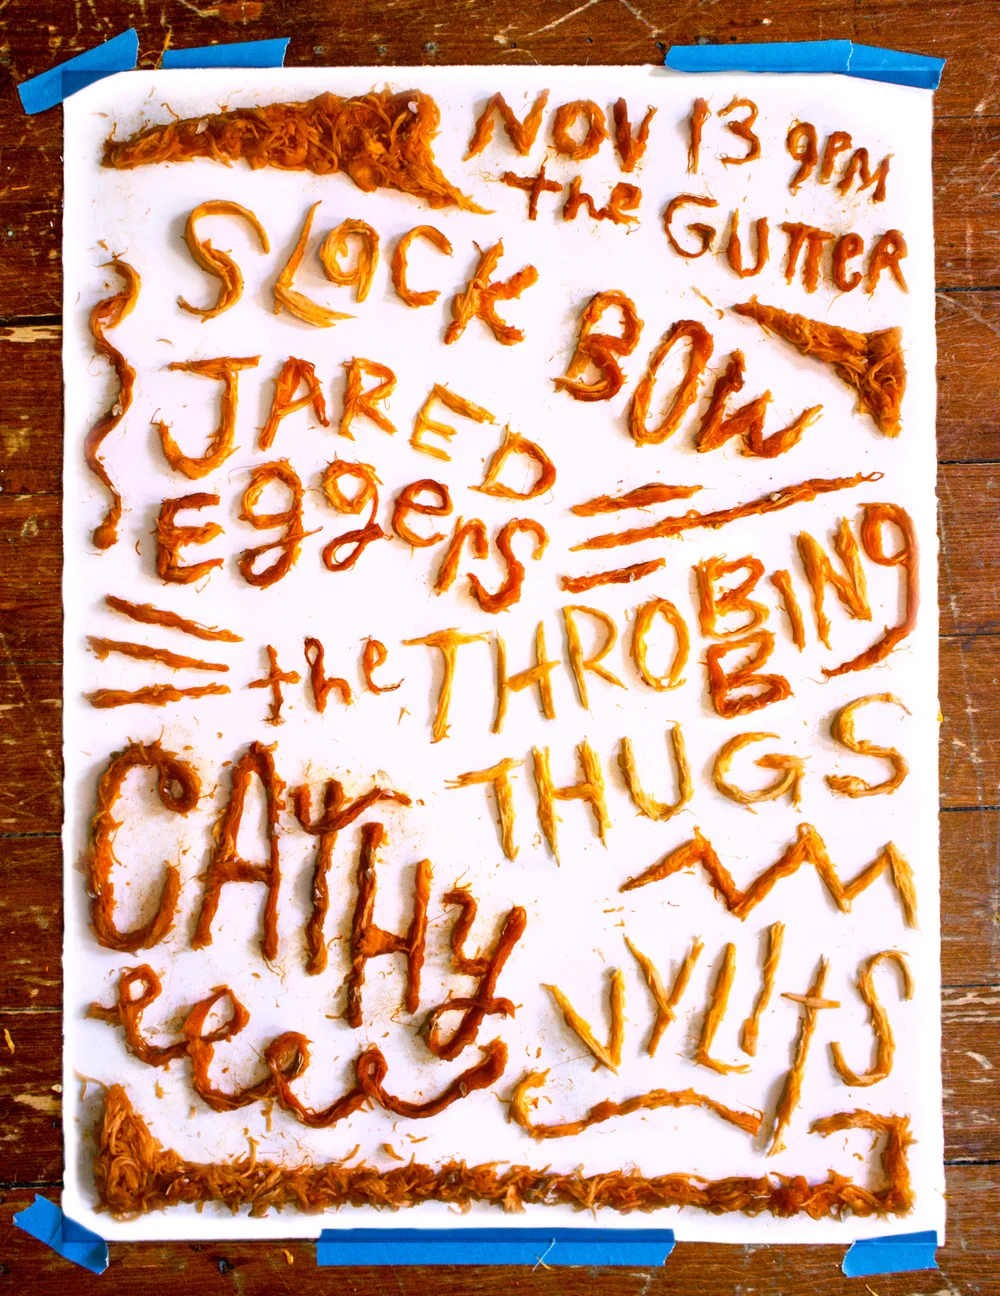 NOV 13 9PM
the GUTTER
SLaCK
BOW
JARED
Eggers
the THROBBINg
THUGS
CATHy
VYLItS